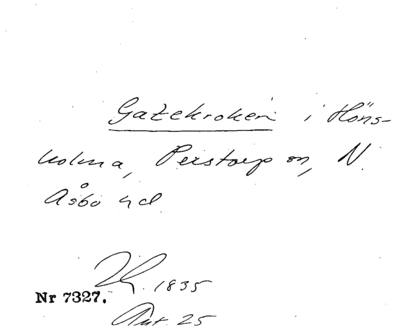 Gatekroken i Höns-
holma, Perstorp sn, N.
Åsbo hd
1835
Nr 7327.
25